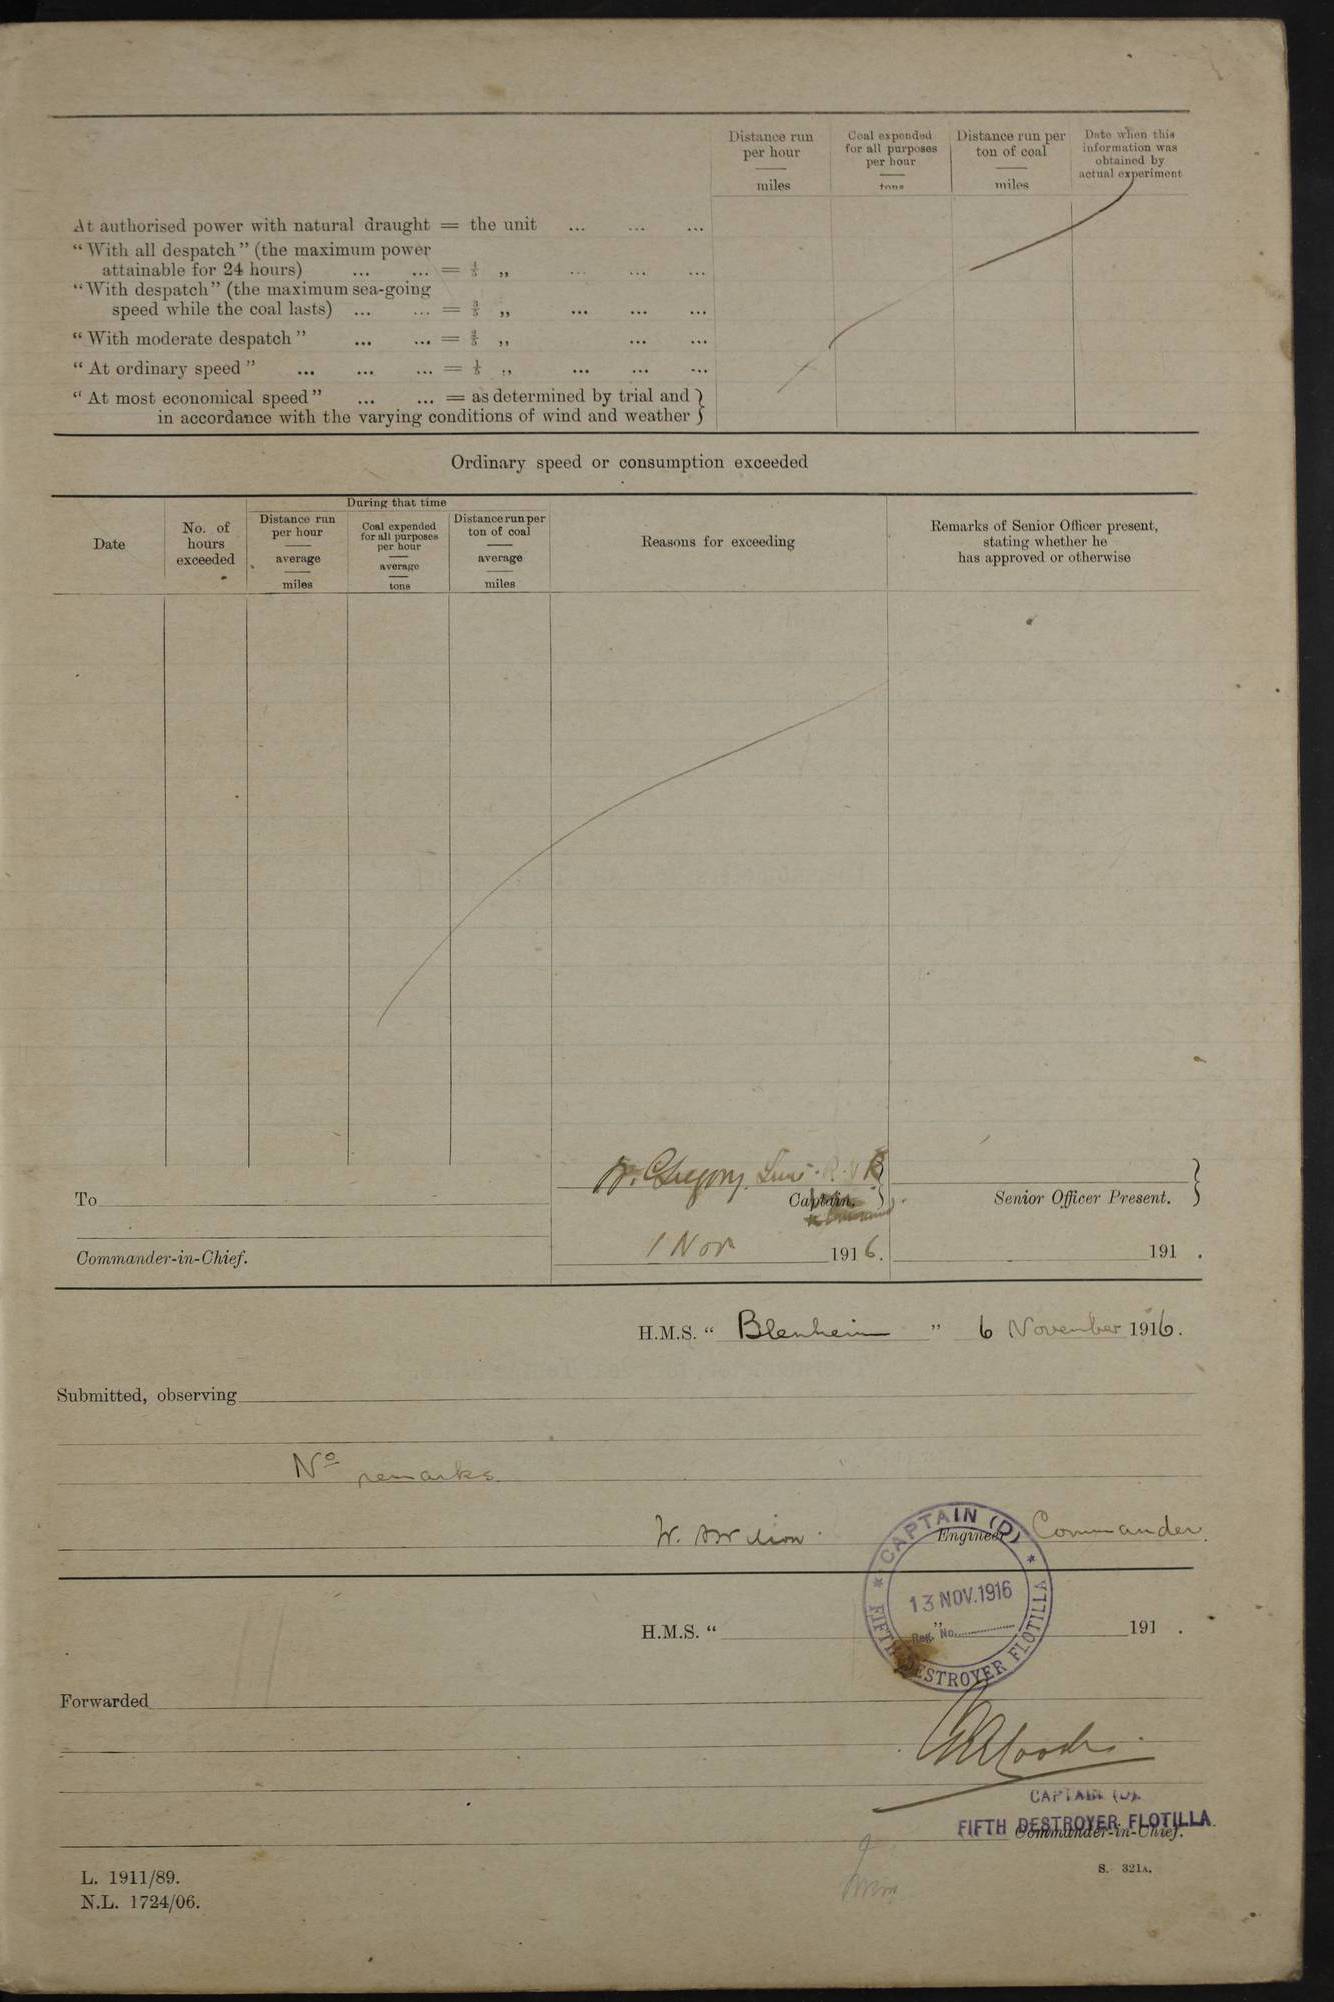 Distance run per hour miles
Coal expended for all purposes per hour tons
Distance run per ton of coal miles
Date when this information was obtained by actual experiment
At authorised power with natural draught = the unit ... ... ...
“With all despatch” (the maximum power
attainable for 24 hours) ... ... = 4/5 „ ... ... ...
“With despatch” (the maximum sea-going
speed while the coal lasts) ... ... = 3/5 „ ... ... ...
“With moderate despatch” ... ... = 2/5 „ ... ...
“At ordinary speed” ... ... ... = 1/5 „ ... ... ...
“At most economical speed” ... ... = as determined by trial and }
in accordance with the varying conditions of wind and weather }
Ordinary speed or consumption exceeded
During that time
Date
No. of hours exceeded
Distance run per hour average miles
Coal expended for all purposes per hour average tons
Distance run per ton of coal average miles
Reasons for exceeding
Remarks of Senior Officer present, stating whether he has approved or otherwise
W. Gregory. R.N.R
To
Captain.
Senior Officer Present.
Commander-in-Chief.
1 Nov 1916.
191 .
H.M.S. “ Blenheim ” 6 November 1916.
Submitted, observing
No remarks
W. Engineer Commander.
CAPTAIN (D)
13 NOV. 1916
Reg. No.
FIFTH DESTROYER FLOTILLA
H.M.S. “ ” 191 .
Forwarded
CAPTAIN (D).
FIFTH DESTROYER FLOTILLA.
Commander-in-Chief.
L. 1911/89.
N.L. 1724/06.
S. 321A.